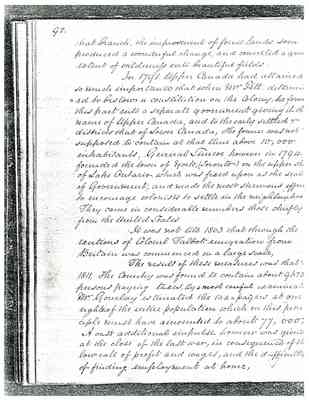 92.
that Branch, the improvement of forest lands soon
produced a wonderful change, and converted a
extent of wilderness into beautiful fields
In 1791 Upper Canada had attained a
so much importance that when Mr Pitt
ed to bestow a constitution on the Colony, he form
this part into a separate government giving it the
name of Upper Canada, and to the early settled
districts that of Lower Canada, The former was not
supposed to contain at that time above 10,000
inhabitants, General Simcoe however in 1794
founded the town of York, Toronto on the
of Lake Ontario which was fixed upon as the seat
of Government, and made the most strenuous
to encourage colonists to settle in the neighbourhood
They came in considerable numbers tho chiefly
from the United States
It was not till 1803 that through the
exertions of Colonel Talbot emigration from
Britain was commenced in a large scale,
The result of these measures was that
1811, The Country was found to contain about
persons paying taxes,
Mr Gourlay estimated the taxpayers at one
eighth of the entire population which on this
ciple must have amounted to about 77,000,
A vast additional impulse however was given
at the close of the last war, in consequence of the
low rate of profit and wages, and the
of finding employment at home,